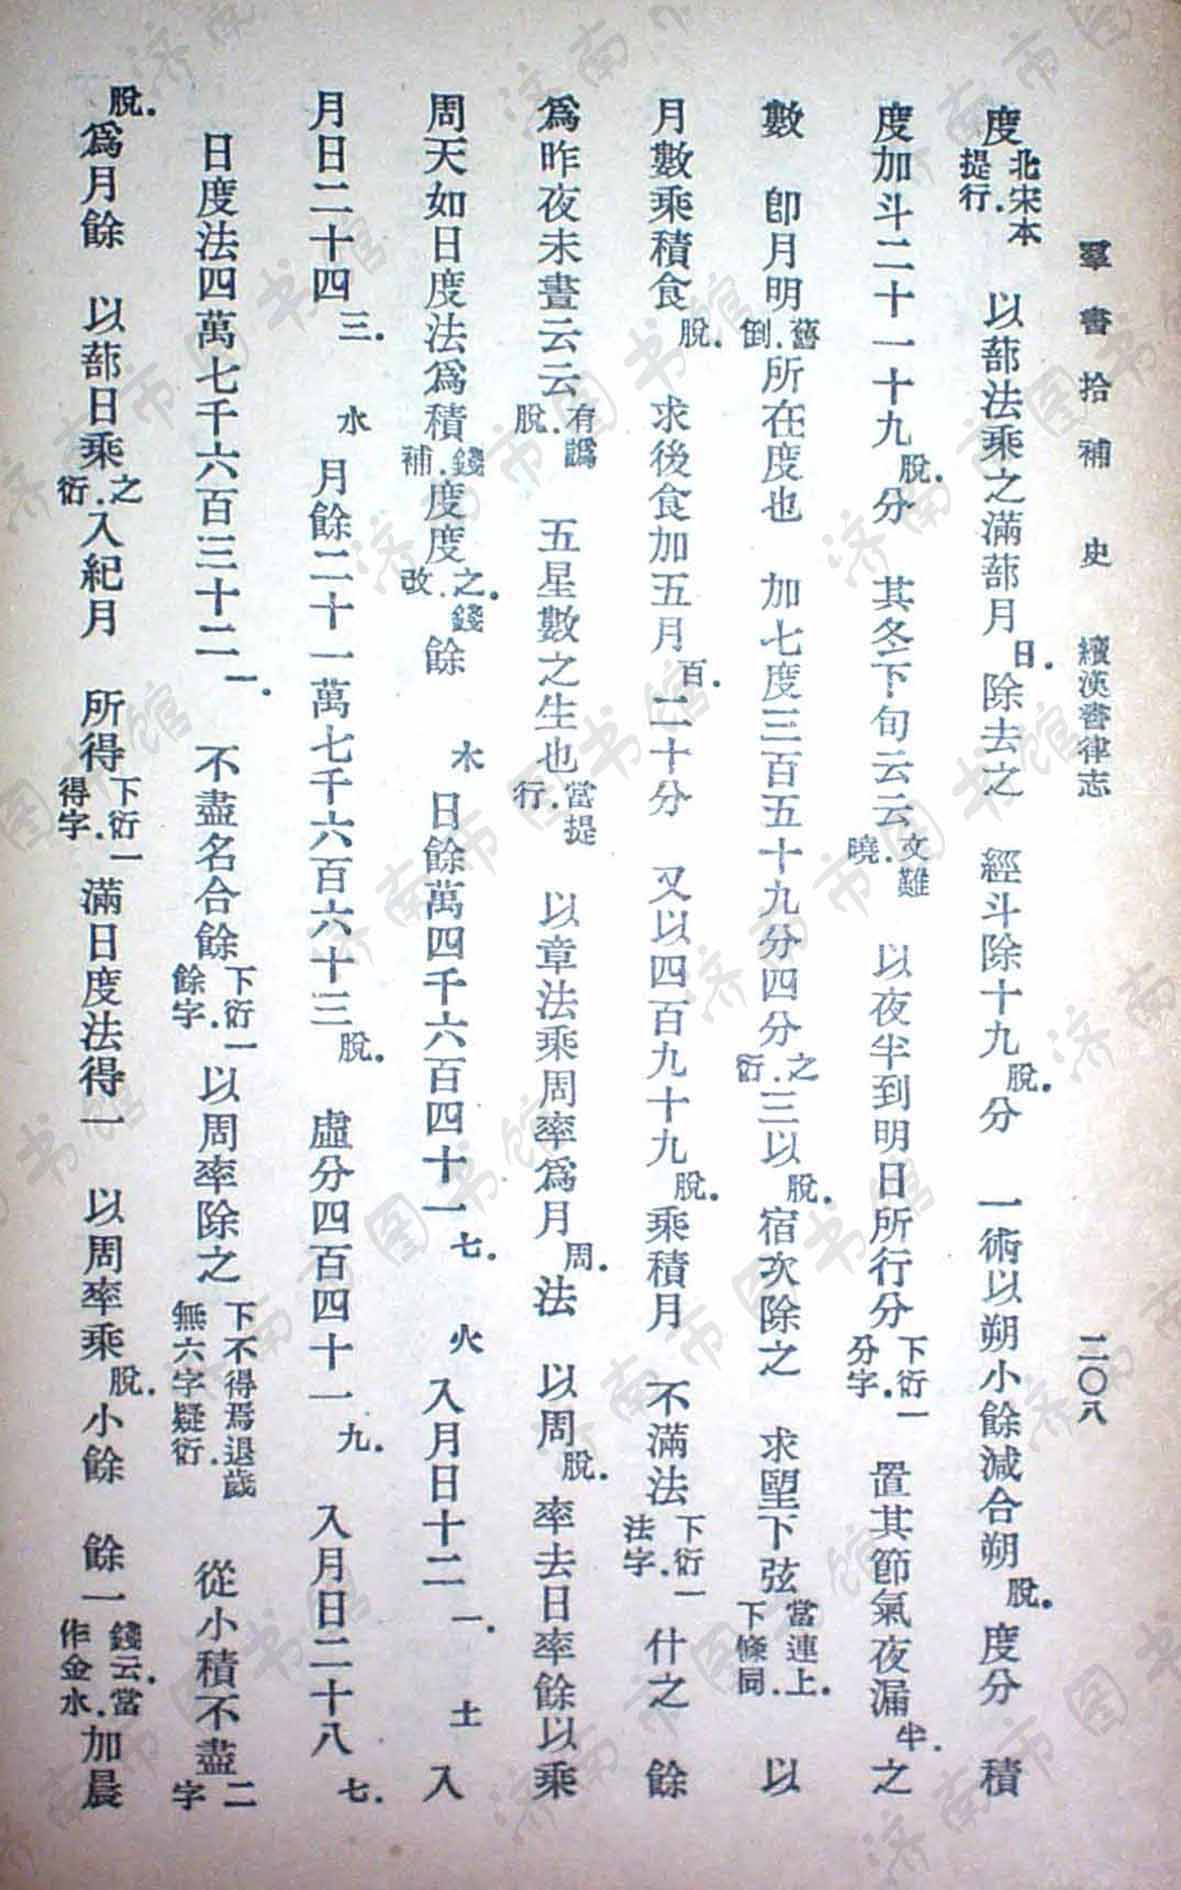 羣書拾補 史 續漢書律志 二〇八
度北宋本提行. 以蔀法乘之滿蔀月日. 除去之 經斗除十九脫.分 一術以朔小餘減合朔脫. 度分 積
度加斗二十一十九脫.分 其冬下旬云云文難曉. 以夜半到明日所行分下衍一分字. 置其節氣夜漏半.之
數 卽月明舊倒.所在度也 加七度三百五十九分四分之衍.三以脫.宿次除之 求望下弦當連上.下條同. 以
月數乘積食脫. 求後食加五月百.二十分 又以四百九十九脫.乘積月 不滿法下衍一法字. 什之 餘
爲昨夜未晝云云有譌脫. 五星數之生也當提行. 以章法乘周率爲月周.法 以周脫.率去日率餘以乘
周天如日度法爲積錢補.度度之.錢改.餘 木 日餘萬四千六百四十一七. 火 入月日十二一. 土 入
月日二十四三. 水 月餘二十一萬七千六百六十三脫. 虛分四百四十一九. 入月日二十八七.
日度法四萬七千六百三十二一. 不盡名合餘下衍一餘字.以周率除之下不得焉退歲無六字疑衍. 從小積不盡二字
脫.爲月餘 以蔀日乘之衍.入紀月 所得下衍一得字.滿日度法得一 以周率乘脫.小餘 餘一錢云.當作金水.加晨
济南市图书馆